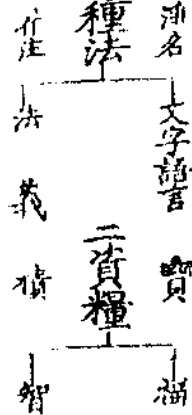 名
文字語言
寶
福
種法
二資糧
法義
積
智